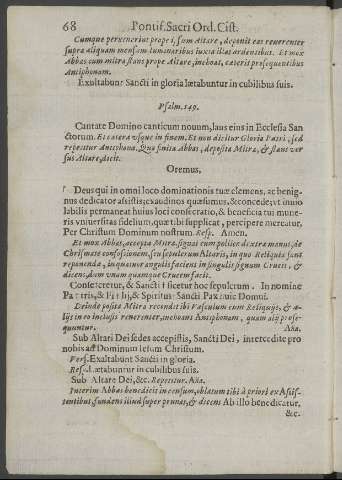 68 Pontif. Sacri Ord. Cist.
Cumque peruenerint prope ipsum Altare, deponit eas reuerenter
supra aliquam mensam luminaribus iuxta illas ardentibus. Et mox
Abbas cum mitra stans prope Altare, inchoat, cæteris prosequentibus
Antiphonam.
Exultabunt Sancti in gloria lætabuntur in cubilibus suis.
Psalm. 149.
Cantate Domino canticum nouum, laus eius in Ecclesia San
ctorum. Et cætera vsque in finem. Et non dicitur Gloria Patri, sed
repetitur Antiphona. Qua finita Abbas, deposita Mitra, & stans ver
sus Altare, dicit.
Oremus,
Deus qui in omni loco dominationis tuæ clemens, ac benig-
nus dedicator assistis; exaudi nos quæsumus, & concede, vt inuio
labilis permaneat huius loci consecratio, & beneficia tui mune-
ris vniuersitas fidelium, quæ tibi supplicat, percipere mereatur.
Per Christum Dominum nostrum. Resp. Amen.
Et mox Abbas, accepta Mitra, signat cum pollice dextræ manus, de
Chrismate confossionem, seu sepulcrum Altaris, in quo Reliquiæ sunt
reponendæ, in quatuor angulis faciens in singulis signum Crucis, &
dicens, dum vnam quamque Crucem facit.
Consecretur, & Sancti † ficetur hoc sepulcrum. In nomine
Pa † tris, & Fi † lij, & Spiritus Sancti Pax huic Domui.
Deinde posita Mitra recondit ibi Vasculum cum Reliquijs, & a-
lijs in eo inclusis reuerenter, inchoans Antiphonam, quam alij prose-
quuntur. Aña.
Sub Altari Dei sedes accepistis, Sancti Dei, intercedite pro
nobis ad Dominum Iesum Christum.
Vers. Exultabunt Sancti in gloria.
Resp. Lætabuntur in cubilibus suis.
Sub Altare Dei, &c. Repetitur. Aña.
Interim Abbas benedicit incensum, oblatum sibi à priori ex Assis-
tentibus, fundens illud super prunas, & dicens Ab illo benedicatur,
&c.